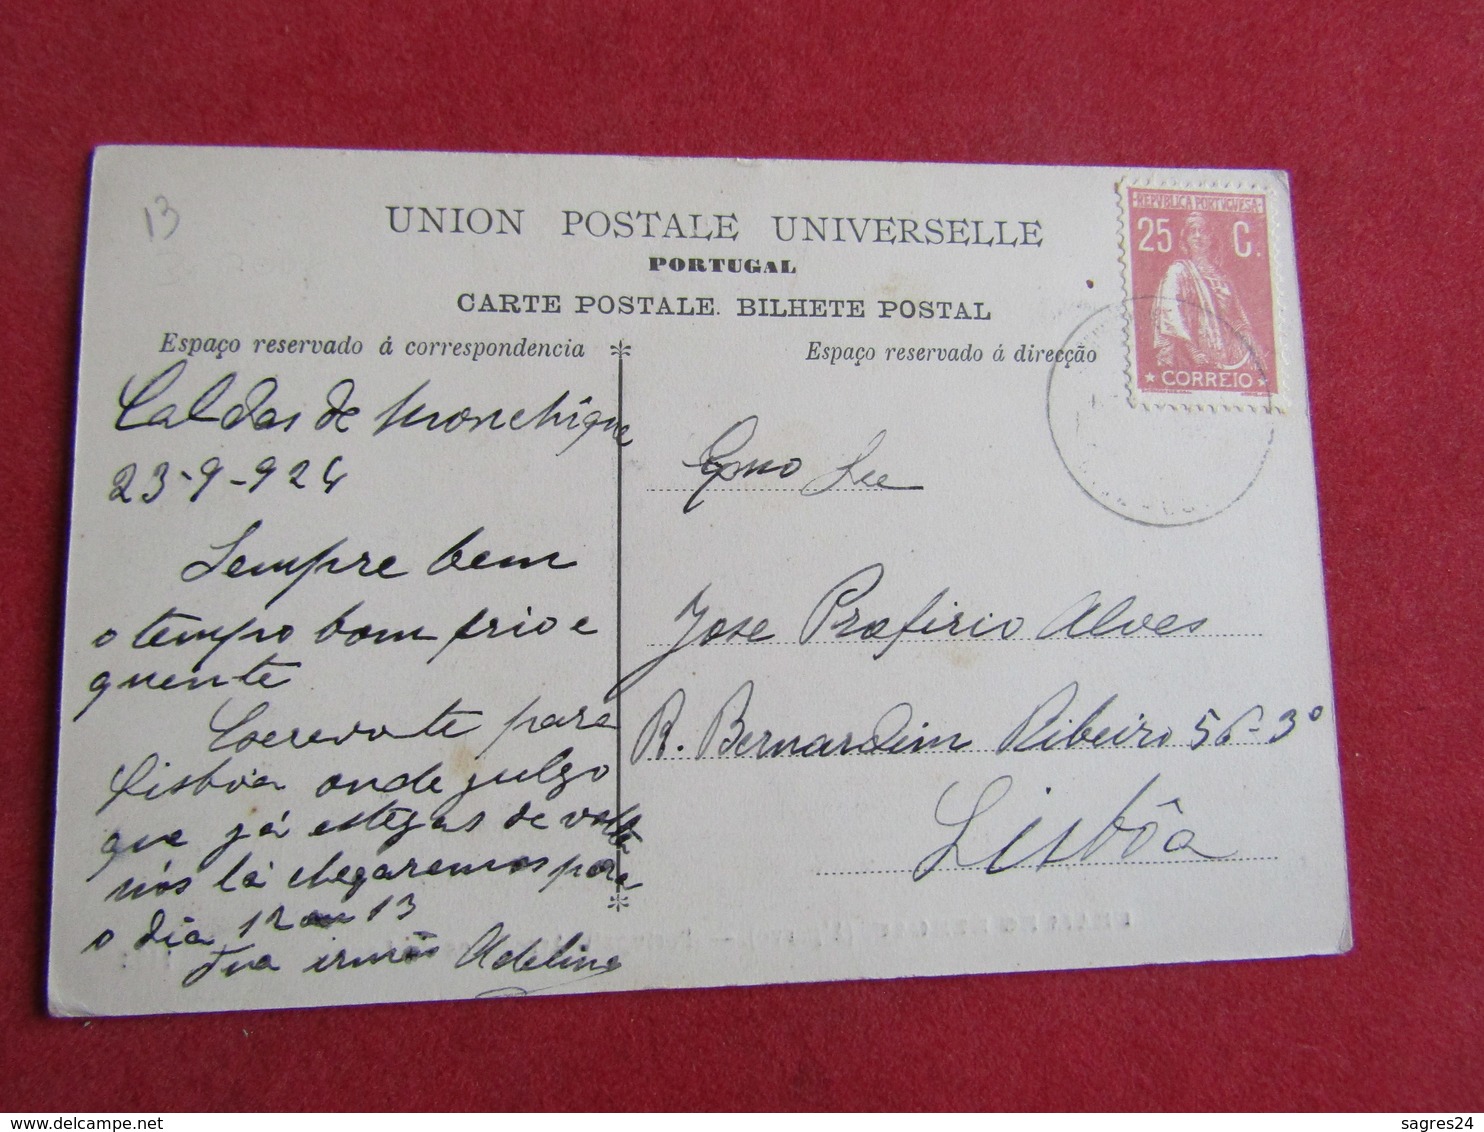 13
UNION POSTALE UNIVERSELLE
PORTUGAL
CARTE POSTALE. BILHETE POSTAL
REPVBLICA PORTVGVESA
25 C.
CORREIO
Espaço reservado á correspondencia
Espaço reservado á direcção
Caldas de Monchique
23-9-924
Sempre bem
o tempo bom frio e
quente
para
Lisbôa onde julgo
que já estejas de volta
nós lá chegaremos para
o dia 12 ou 13
Tua irmã Adelina
Exmo Snr
Jose Profirio Alves
R. Bernardim Ribeiro 56-3º
Lisbôa
sagres24